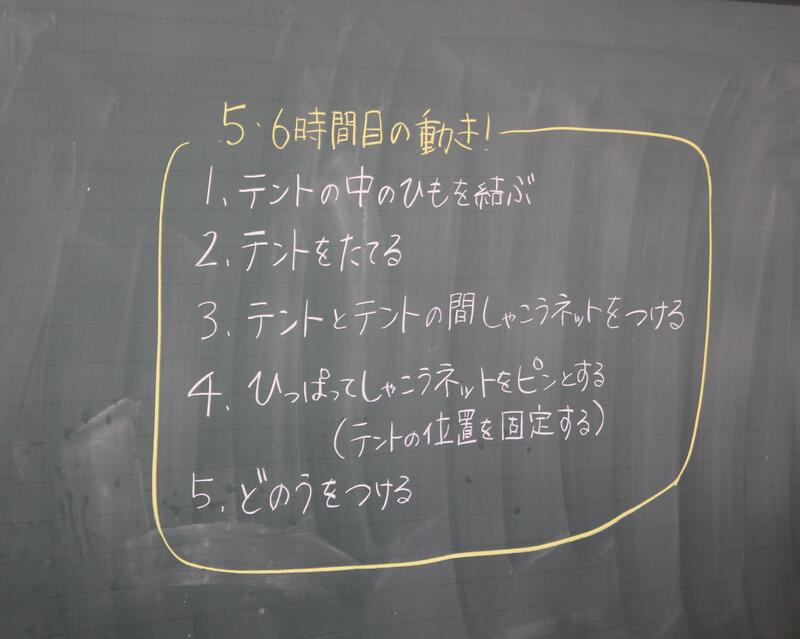 5・6時間目の動き!
1、テントの中のひもを結ぶ
2、テントをたてる
3、テントとテントの間しゃこうネットをつける
4、ひっぱってしゃこうネットをピンとする
(テントの位置を固定する)
5、どのうをつける